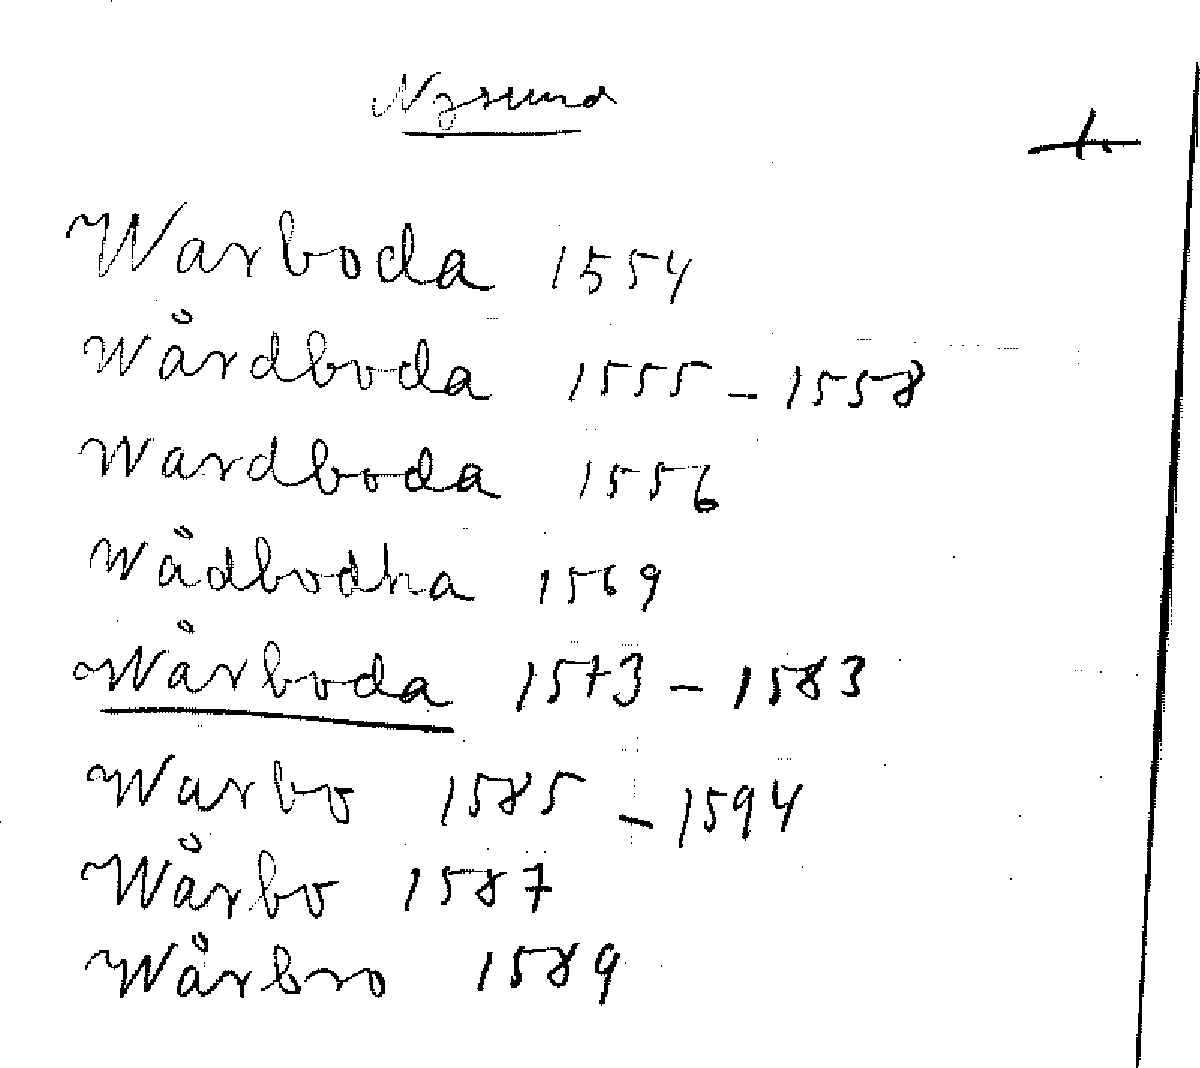 Nysund
1.
Warboda 1554
Wårdboda 1555 - 1558
Wardboda 1556
Wådbodha 1569
Wårboda 1573 - 1583
Warbo 1585 - 1594
Wårbo 1587
Wårbro 1589